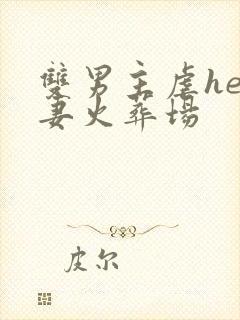 双男主虐he
妻火葬场
皮尔